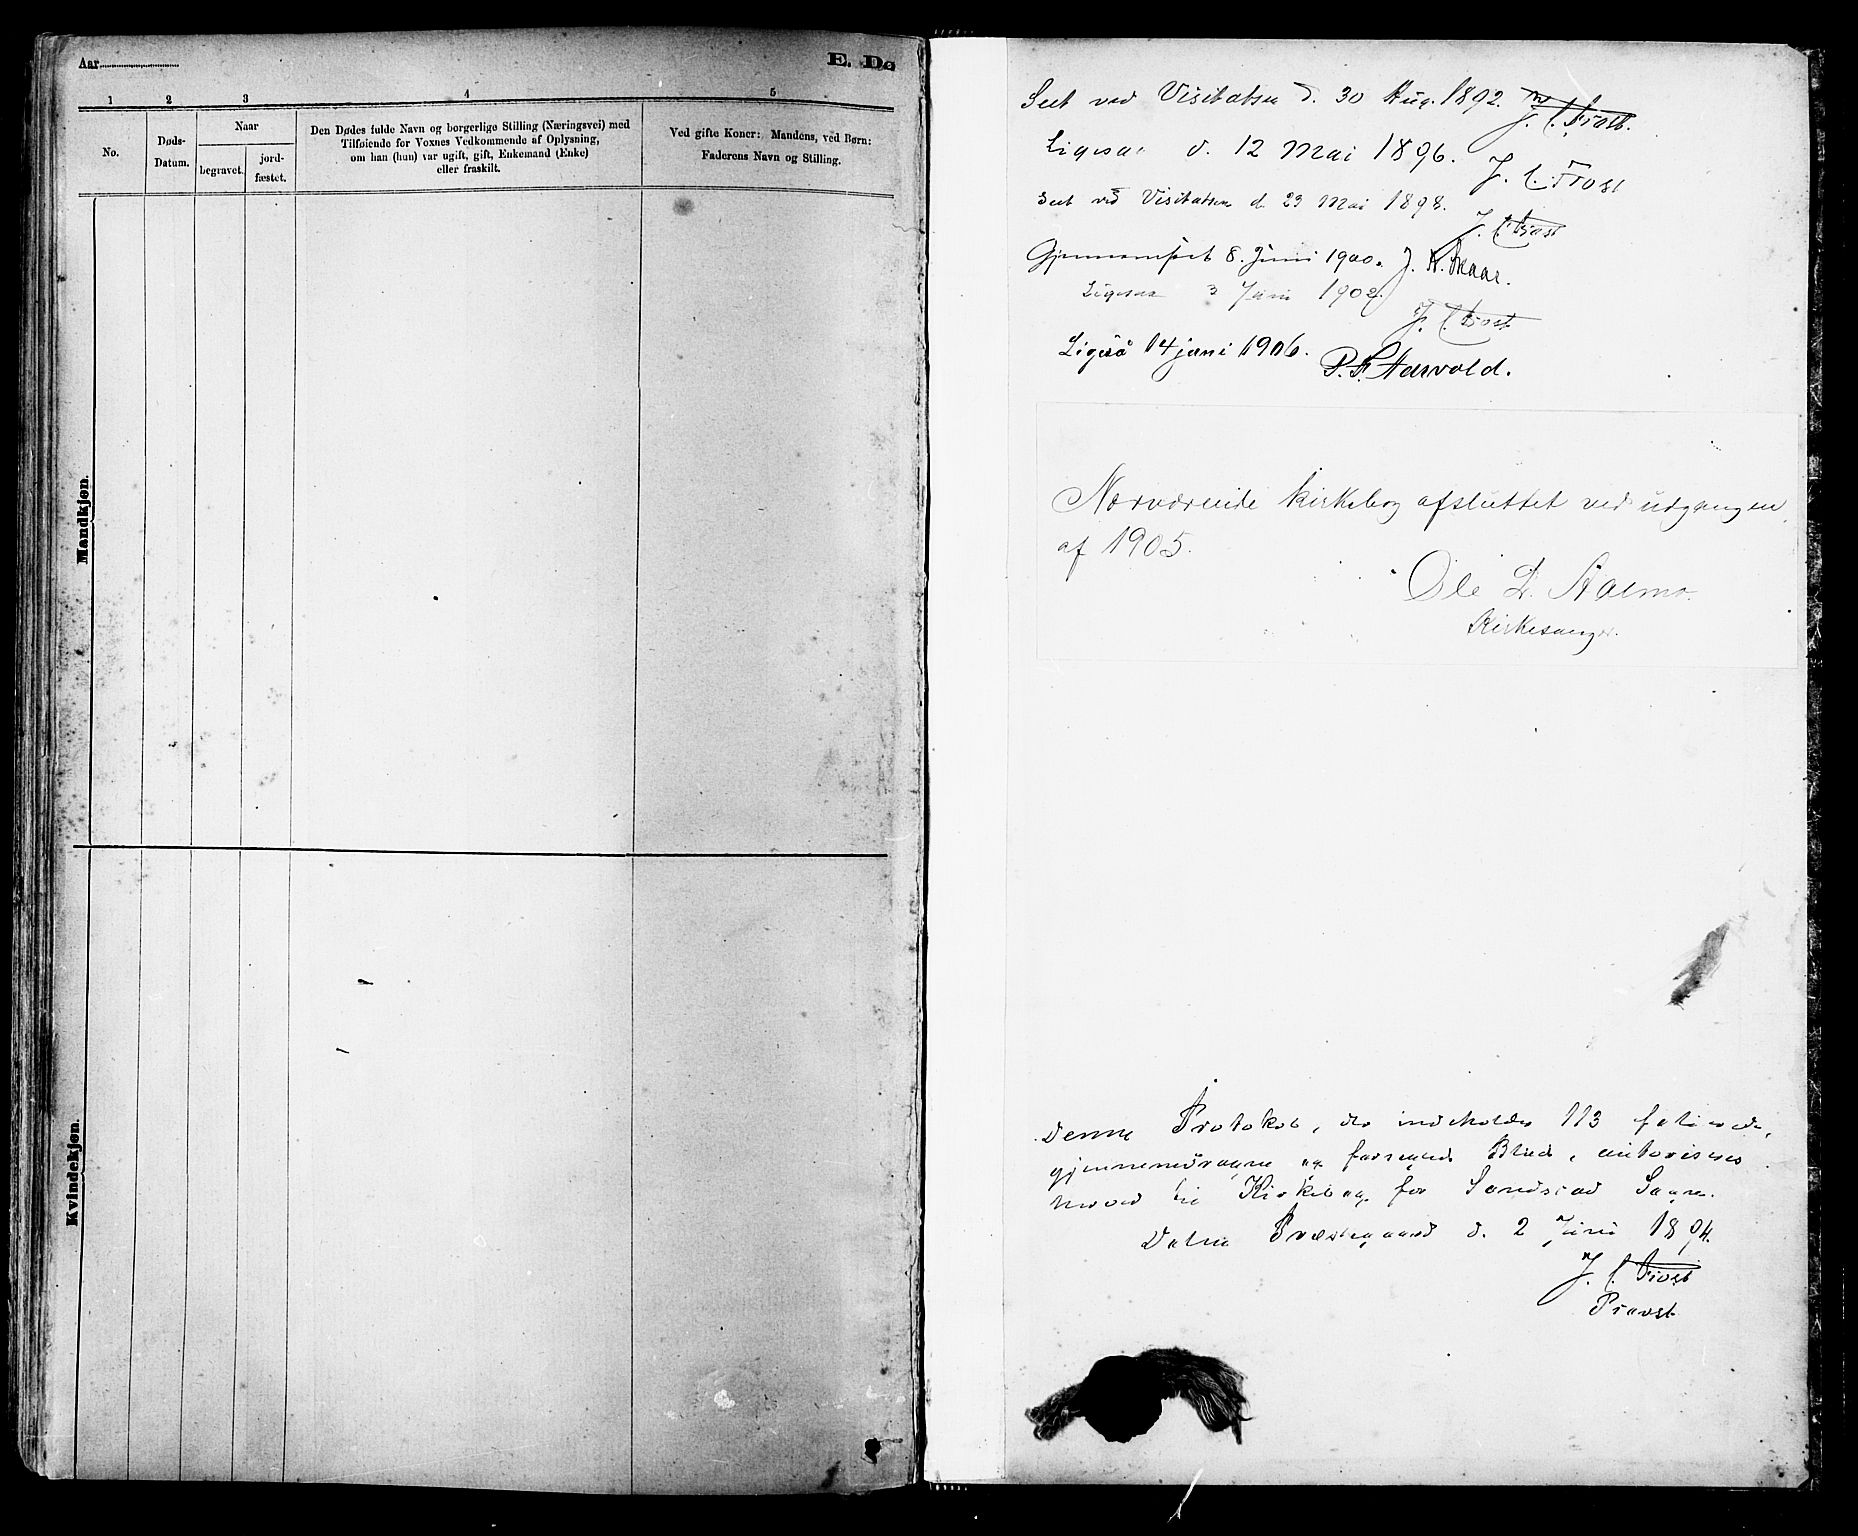 Aar
E. Dø
1 2 3 4 5
No.
Døds-
Datum.
Naar
begravet.
jord-
fæstet.
Den Dødes fulde Navn og borgerlige Stilling (Næringsvei) med
Tilføiende for Voxnes Vedkommende af Oplysning,
om han (hun) var ugift, gift, Enkemand (Enke)
eller fraskilt.
Ved gifte Koner: Mandens, ved Børn:
Faderens Navn og Stilling.
Mandkjøn.
Kvindekjøn.
Seet ved Visitatsen d. 30 Aug. 1892. J. C. Frost.
Ligesaa d. 12 Mai 1896.
J. C. Frost
Seet ved Visitatsen d. 29 Mai 1898.
J. C. Frost
Gjennemseet 8. Juni 1900. J. N. Skaar.
Ligesaa 3 Juni 1902.
J. C. Frost
Ligeså 14 juni 1906.
Nærværende kirkebog afsluttet ved udgangen
af 1905.
Ole L.
Kirkesanger.
Denne Protokol, der indeholder 113 folierede,
gjennemdragne og forseglede Blade, autoriseres
herved til Kirkebog for Sogn.
Præstegaard d. 2 Juni 1894.
J. C. Frost
Provst